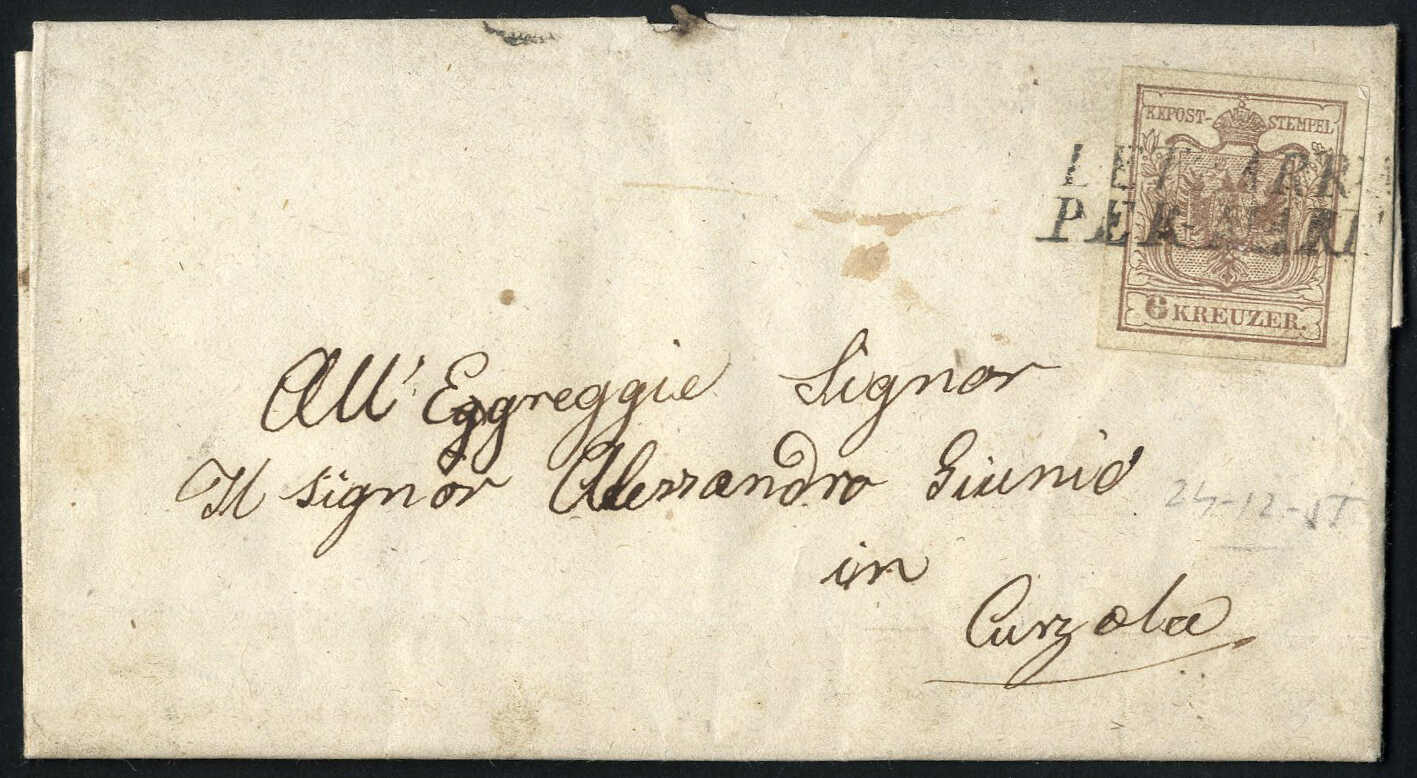 KKPOST-STEMPEL
LET. ARR
PER MARE
6 KREUZER.
All' Eggreggie Signor
Il Signor Alessandro Giunio
in
Curzola
24-12-51